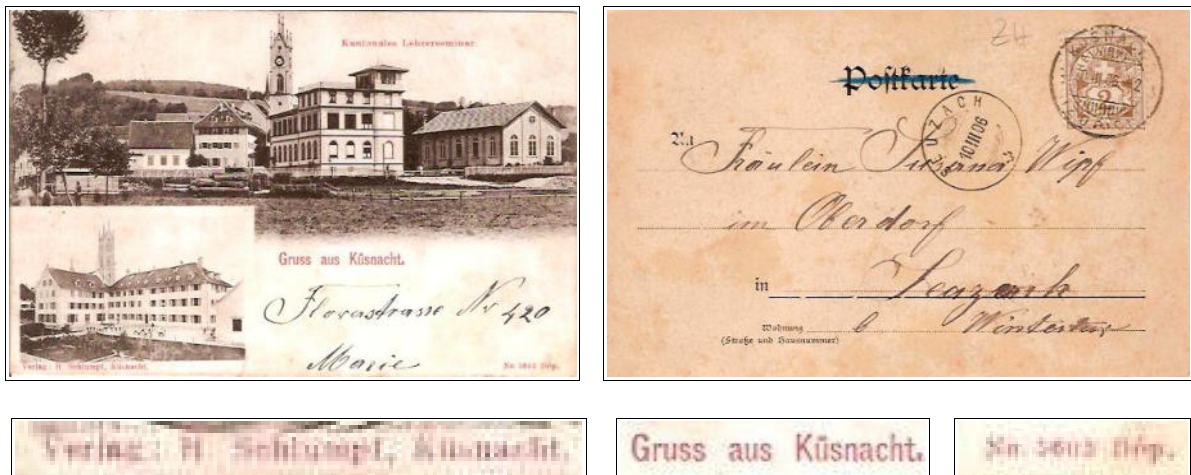 Kantonales Lehrerseminar.
Gruss aus Küsnacht.
Florastrasse Nr 420
Marie
Verlag: H. Schlumpf, Küsnacht.
ZH
Postkarte
SEUZACH
10 III 06
Fräulein Susanna Wipf
im Oberdorf
in Seuzach
Wohnung b Winterthur
(Straße und Hausnummer)
Verlag: H. Schlumpf, Küsnacht.
Gruss aus Küsnacht.